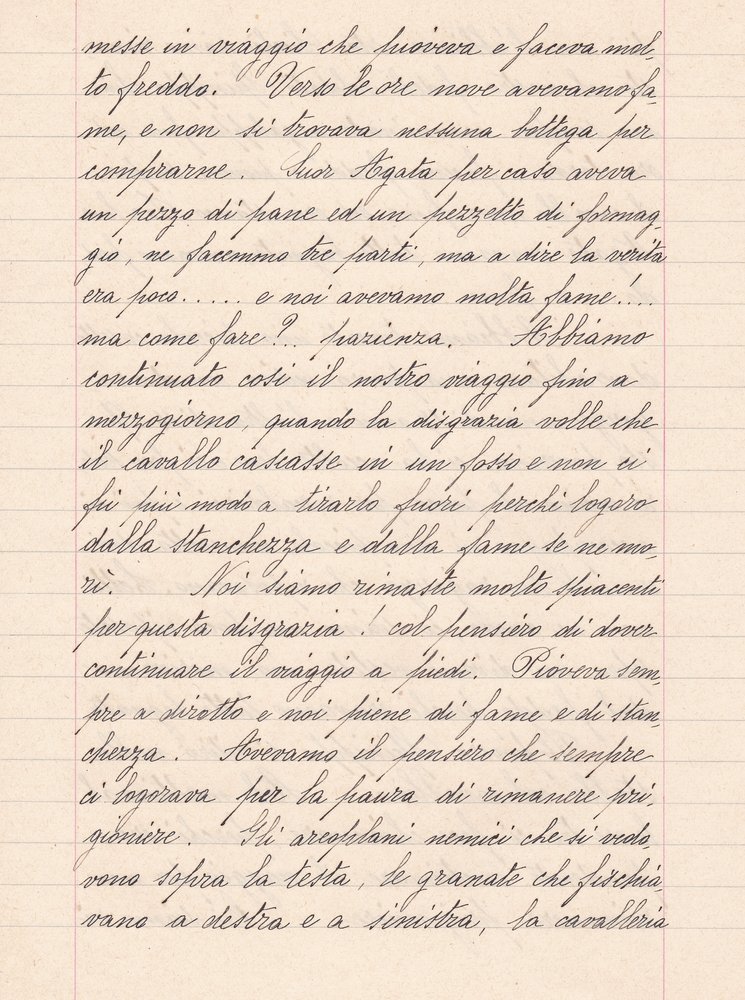 messe in viaggio che pioveva e faceva mol-
to freddo. Verso le ore nove avevamo fa-
me, e non si trovava nessuna bottega per
comprarne. Suor Agata per caso aveva
un pezzo di pane ed un pezzetto di formag-
gio, ne facemmo tre parti, ma a dire la verita
era poco...... e noi avevamo molta fame!...
ma come fare?.. pazienza. Abbiamo
continuato cosi il nostro viaggio fino a
mezzogiorno, quando la disgrazia volle che
il cavallo cascasse in un fosso e non ci
fu piu modo a tirarlo fuori perchè logoro
dalla stanchezza e dalla fame se ne mo-
rì. Noi siamo rimaste molto spiacenti
per questa disgrazia! col pensiero di dover
continuare il viaggio a piedi. Pioveva sem-
pre a dirotto e noi piene di fame e di stan-
chezza. Avevamo il pensiero che sempre
ci logorava per la paura di rimanere pri-
gioniere. Gli areoplani nemici che si vede-
vono sopra la testa, le granate che fischia-
vano a destra e a sinistra, la cavalleria